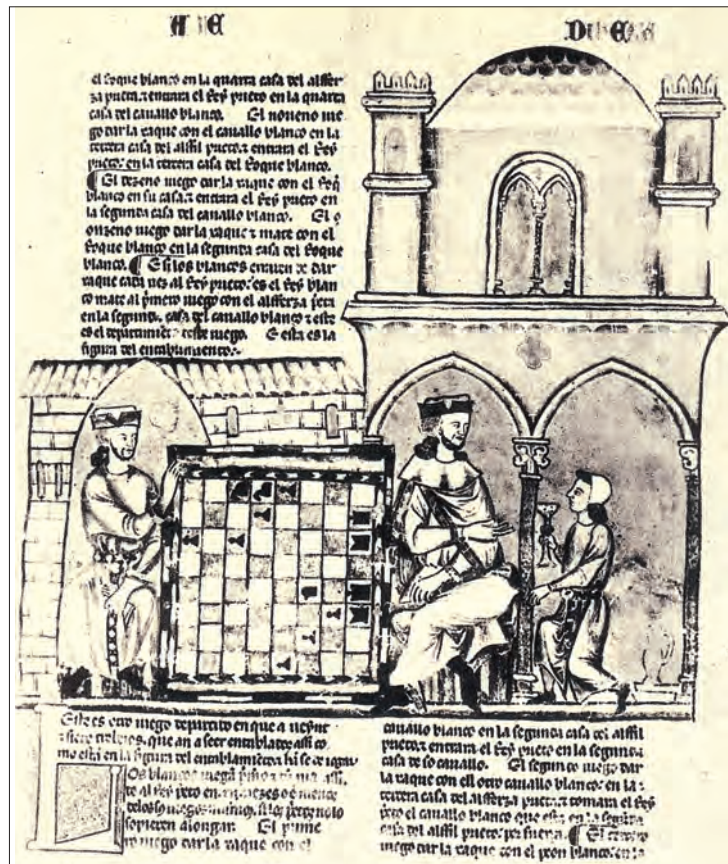 el roque blanco en la quarta casa del alffer
za prieta. z entrara el Rey prieto en la quarta
casa del cauallo blanco. El noueno iue
go dar la xaque con el cauallo blanco en la
tercera casa del alffil prieto. z entrara el Rey
prieto. en la tercera casa del Roque blanco.
El dezeno iuego dar la xaque con el Roq
blanco en su casa. z entrara el Rey prieto en
la segunda casa del cauallo blanco. El
onzeno iuego dar la xaque z mate con el
Roque blanco en la segunda casa del Roque
blanco. E si los blancos de dar
xaque cada uez al Rey prieto. es el Rey blan
co mate al primero iuego con el alfferza prieta
en la segunda casa del cauallo blanco z este
es el departimiento deste iuego. E esta es la
figura del entablamiento.
Este es otro iuego departido en que a ueynt
z siete trebeios. que an a seer entablados assi co
mo esta en la figura del entablamiento. z
Los blancos iuegan primero z assi
te al Rey prieto en o menos
delos iuegos si los prietos nolo
sopieren alongar. El prime
ro iuego dar la xaque con el
cauallo blanco en la segunda casa del alffil
prieto. z entrara el Rey prieto en la segunda
casa de so cauallo. El segundo iuego dar
la xaque con ell otro cauallo blanco. en la
tercera casa del alfferza prieta. z tomara el Rey
prieto el cauallo blanco que esta en la segunda
casa del alffil prieto. por fuerça. El tercero
iuego dar la xaque con el peon blanco. en la